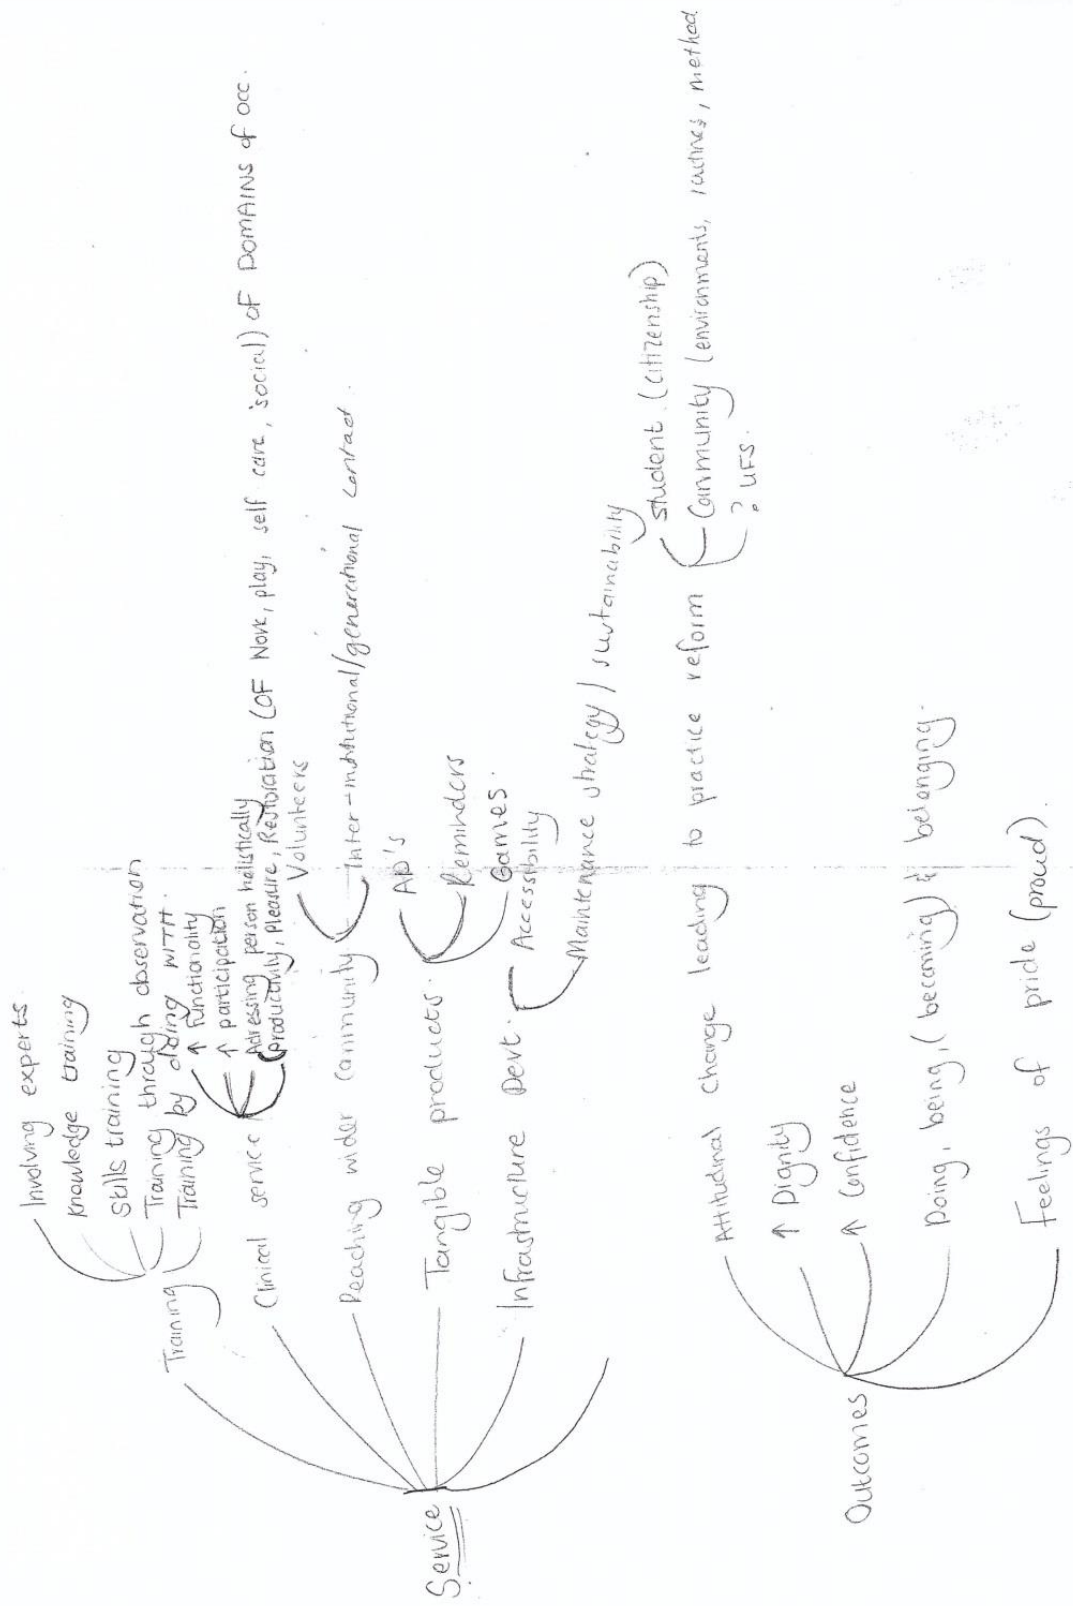 Service
Training
Involving experts.
Knowledge training
Skills training
Training through observation
Training by doing WITH.
Clinical service
↑ functionality
↑ participation
Adressing person holistically
(productivity, pleasure, Restoration (OF Work, play, self care, social) OF DOMAINS of occ.
Reaching wider community
Volunteers
Inter-institutional/generational contact.
Tangible products.
AP's
Reminders
Games.
Infrastructure Devt.
Accessibility
Maintenance strategy / sustainability
Outcomes
Attitudinal change leading to practice reform
Student (citizenship)
Community (environments, routines, method
? UFS.
↑ Dignity
↑ Confidence
Doing, being, (becoming) & belonging.
Feelings of pride (proud).